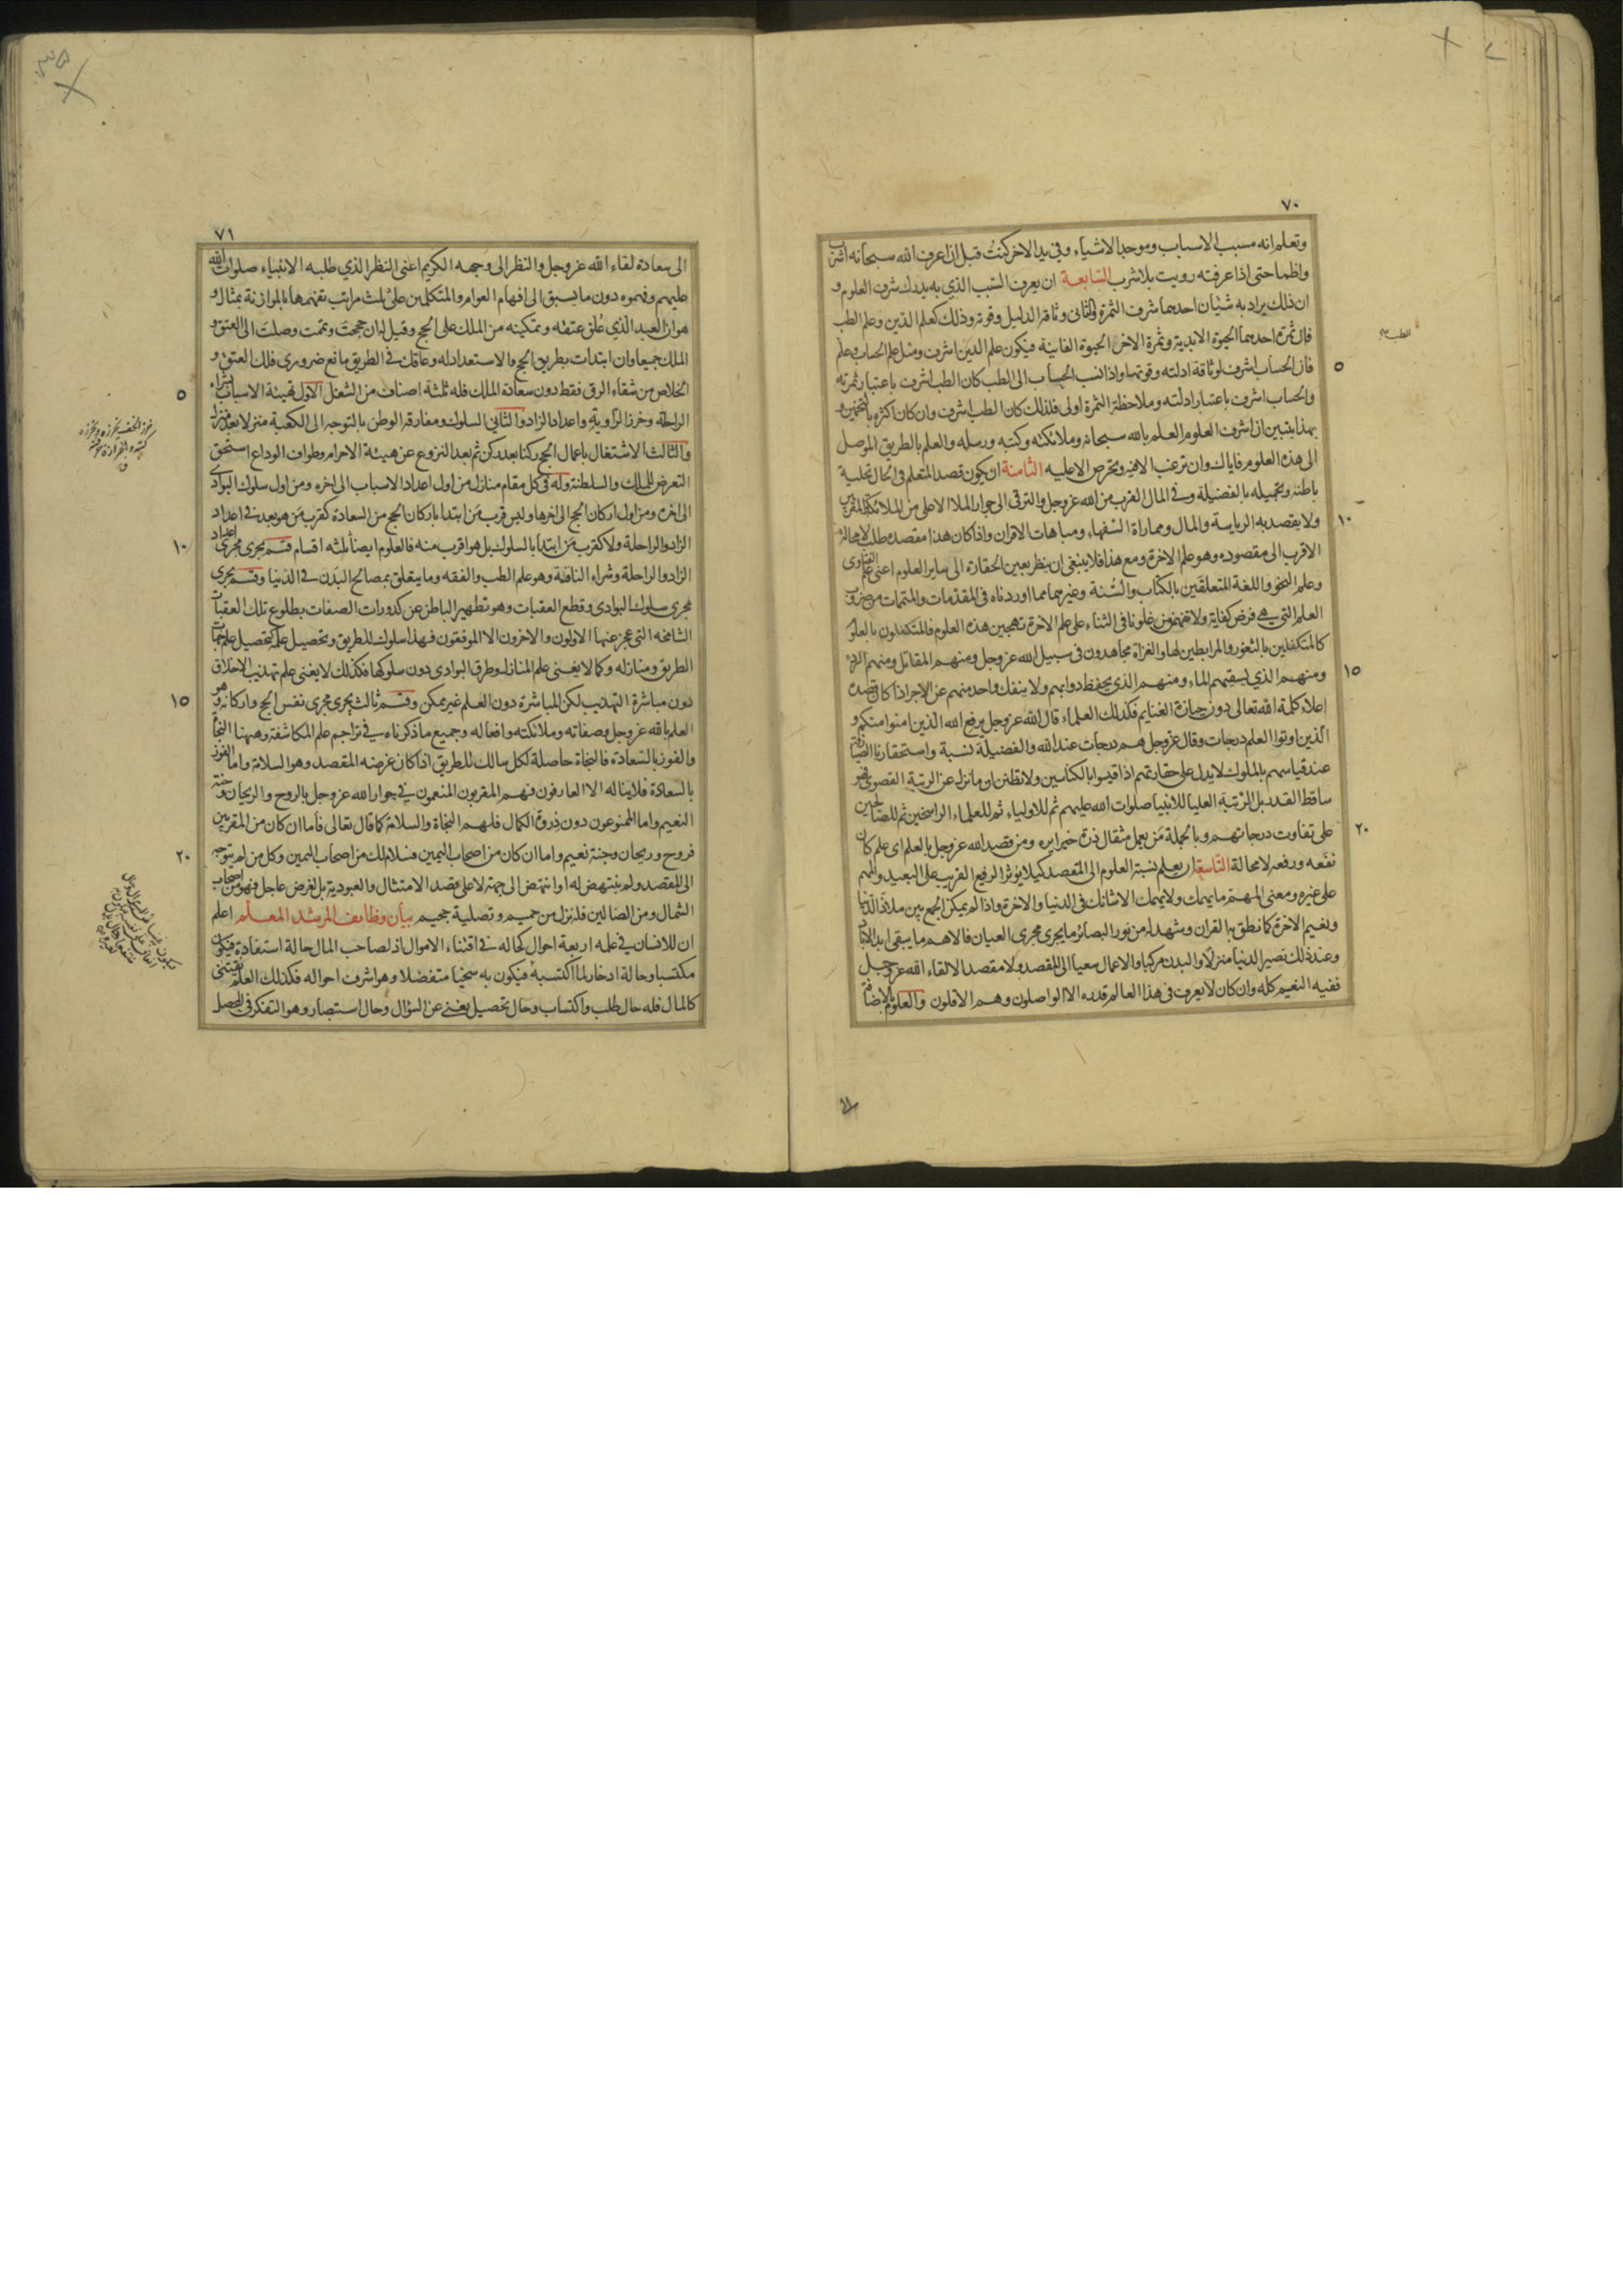 ٧٠
وتعلم انه مسبب الاسباب وموجد الاشياء وفي يد الاخر كنت قبل ان اعرف الله سبحانه اشرب
واظما حتى اذا عرفته رويت بلا شرب السابعة ان يعرف السبب الذي به يدرك شرف العلوم و
ان ذلك يراد به شيئان احدهما شرف الثمرة والثانى وثاقة الدليل وقوته وذلك كعلم الدين وعلم الطب
فان ثمرة احدهما الحيوة الابدية وثمرة الاخر الحيوة الفانية فيكون علم الدين اشرف ومثل علم الحساب وعلم
فان الحساب اشرف لوثاقة ادلته وقوتها واذا نسب الحساب الى الطب كان الطب اشرف باعتبار ثمرته
٥
والحساب اشرف باعتبار ادلته وملاحظة الثمرة اولى فلذلك كان الطب اشرف وان كان اكثره بالتخمين و
بهذا يتبين ان اشرف العلوم العلم بالله سبحانه وملائكته وكتبه ورسله والعلم بالطريق الموصل
الى هذه العلوم فاياك وان ترغب الا فيه وتحرص الا عليه الثامنة ان يكون قصد المتعلم فى الحال تحلية
باطنه وتجميله بالفضيلة وفي المال القرب من الله عز وجل والترقى الى جوار الملا الاعلى من الملائكة المقربين
ولا يقصد به الرياسة والمال ومماراة السفهاء ومباهات الاقران واذا كان هذا مقصده طلب لا محالة
١٠
الاقرب الى مقصوده وهو علم الاخرة ومع هذا فلا ينبغى ان ينظر بعين الحقارة الى ساير العلوم اعنى علم الفتاوى
وعلم النحو واللغة المتعلقين بالكتاب والسنة وغيرهما مما اوردناه فى المقدمات والمتممات من ضروب
العلم التى هى فرض كفاية ولا تفهمن من غلونا فى الثناء على علم الاخرة تهجين هذه العلوم فالمتكفلون بالعلو
كالمتكفلين بالثغور والمرابطين لها والغزاة مجاهدون فى سبيل الله عز وجل ومنهم المقاتل ومنهم الردء
ومنهم الذي يسقيهم الماء ومنهم الذى يحفظ دوابهم ولا ينفك واحد منهم عن الاجر اذا كان قصده
١٥
اعلاء كلمة الله تعالى دون حيازة الغنايم فكذلك العلماء قال الله عز وجل يرفع الله الذين امنوا منكم و
الذين اوتوا العلم درجات وقال عز وجل هم درجات عند الله والفضيلة نسبة واستحقارنا الصيارفة
عند قياسهم بالملوك لا يدل على حقارتهم اذا قيسوا بالكناسين ولا تظنن ان ما نزل عن الرتبة القصوى فهو
ساقط القدر بل الرتبة العليا للانبيا صلوات الله عليهم ثم للاولياء ثم للعلماء الراسخين ثم للصالحين
على تفاوت درجاتهم وبالجملة من يعمل مثقال ذرة خيرا يره ومن قصد الله عز وجل بالعلم اى علم كان
٢٠
نفعه ورفعه لا محالة التاسعة ان يعلم نسبة العلوم الى المقصد كيلا يؤثر الرفيع القريب على البعيد والمهم
على غيره ومعنى المهم ما يهمك ولا يهمك الا شانك فى الدنيا والاخرة واذا لم يمكن الجمع بين ملاذ الدنيا
ونعيم الاخرة كما نطق به القران وشهد له من نور البصائر ما يجرى مجرى العيان فالاهم ما يبقى ابد الاباد
وعند ذلك تصير الدنيا منزلا والبدن مركبا والاعمال سعيا الى المقصد ولا مقصد الا لقاء الله عز وجل
ففيه النعيم كله وان كان لا يعرف فى هذا العالم قدره الا الواصلون وهم الاقلون والعلوم بالاضافة
الطب
٧١
الى سعادة لقاء الله عز وجل والنظر الى وجهه الكريم اعنى النظر الذي طلبه الانبياء صلوات الله
عليهم وفهموه دون ما يسبق الى افهام العوام والمتكلمين على ثلث مراتب تفهمها بالموازنة بمثال و
هو ان العبد الذي علق عتقه وتمكينه من الملك على الحج وقيل له ان حججت وتممت وصلت الى العتق و
الملك جميعا وان ابتدات بطريق الحج والاستعداد له وعاقك فى الطريق مانع ضرورى فلك العتق و
الخلاص من شقاء الرق فقط دون سعادة الملك فله ثلثة اصناف من الشغل الاول تهيئة الاسباب بشراء
٥
الراحلة وخرز الراوية واعداد الزاد والثانى السلوك ومفارقة الوطن بالتوجه الى الكعبة منزلا بعد منزل
والثالث الاشتغال باعمال الحج ركنا بعد ركن ثم بعد النزوع عن هيئة الاحرام وطواف الوداع استحق
التعرض للملك والسلطنة وله فى كل مقام منازل من اول اعداد الاسباب الى اخره ومن اول سلوك البوادى
الى اخره ومن اول اركان الحج الى اخرها وليس قرب من ابتدا باركان الحج من السعادة كقرب من هو بعد فى اعداد
الزاد والراحلة ولا كقرب من ابتدا بالسلوك بل هو اقرب منه فالعلوم ايضا ثلثه اقسام قسم يجرى مجرى اعداد
١٠
الزاد والراحلة وشراء الناقة وهو علم الطب والفقه وما يتعلق بمصالح البدن فى الدنيا وقسم يجرى
مجرى سلوك البوادى وقطع العقبات وهو تطهير الباطن عن كدورات الصفات بطلوع تلك العقبات
الشامخه التى عجز عنها الاولون والاخرون الا الموفقون فهذا سلوك للطريق وتحصيل علمه كتحصيل علم جهات
الطريق ومنازله وكما لا يغنى علم المنازل وطرق البوادى دون سلوكها فكذلك لا يغنى علم تهذيب الاخلاق
دون مباشرة التهذيب لكن المباشرة دون العلم غير ممكن وقسم ثالث يجرى مجرى نفس الحج واركانه وهو
١٥
العلم بالله عز وجل وصفاته وملائكته وافعاله وجميع ما ذكرناه فى تراجم علم المكاشفة وههنا النجاة
والفوز بالسعادة فالنجاة حاصلة لكل سالك للطريق اذا كان غرضه المقصد وهو السلامة واما الفوز
بالسعادة فلا يناله الا العارفون فهم المقربون المنعمون فى جوار الله عز وجل بالروح والريحان وجنة
النعيم واما الممنوعون دون ذروة الكمال فلهم النجاة والسلامة كما قال تعالى فاما ان كان من المقربين
فروح وريحان وجنة نعيم واما ان كان من اصحاب اليمين فسلام لك من اصحاب اليمين وكل من لم يتوجه
٢٠
الى المقصد ولم ينتهض له او انتهض الى جهته لا على قصد الامتثال والعبودية بل لغرض عاجل فهو من اصحاب
الشمال ومن الضالين فله نزل من حميم وتصلية جحيم بيان وظايف المرشد المعلم اعلم
ان للانسان فى علمه اربعة احوال كحاله فى اقتناء الاموال اذ لصاحب المال حالة استفادة فيكون
مكتسبا وحالة ادخار لما اكتسبه فيكون به سخيا متفضلا وهو اشرف احواله فكذلك العلم يقتنى
كالمال فله حال طلب واكتساب وحال تحصيل يغنى عن السؤال وحال استبصار وهو التفكر فى المحصل
خرز الخف يخرزه ويخرزه